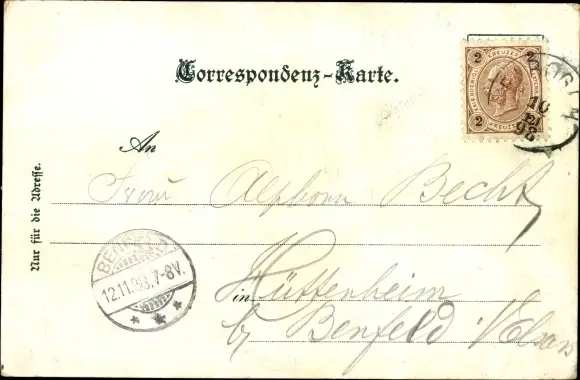 Correspondenz-Karte.
2 KREUZER 2
2 KREUZER
10
98
An
Nur für die Adresse.
Frau Alphons Becht
BENFELD
12.11.98.7-8V.
in Hüttenheim
by Benfeld Elsass